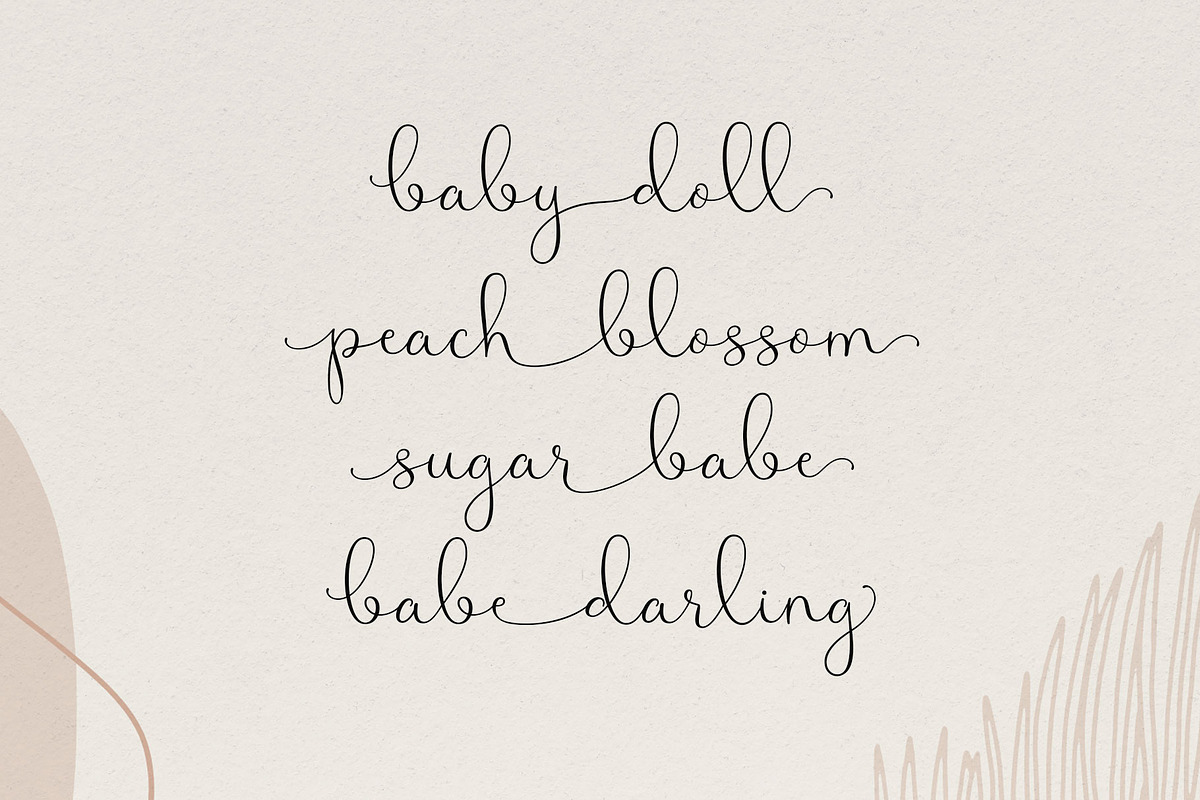 baby doll
peach blossom
sugar babe
babe darling